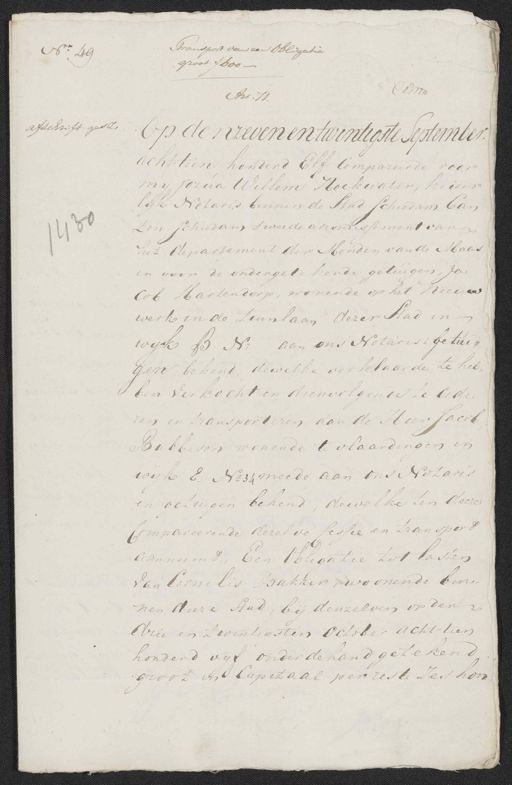 No. 49
Transport van een Obligatie
groot f 600 —
afschrift
Op den zeven en twintigste September
achttien honderd Elf Compareerde voor
my Josua Willem Hoekwater, keizer
lyk Notaris binnen de Stad Schiedam Can
ton Schiedam tweede arrondissement van
het departement der Monden van de Maas
en voor de ondergetekende getuigen, Ja
cob Hartendorp, wonende op het Nieuw
werk in de Laan dezer Stad in
wyk B No. aan ons Notaris & getui
gen bekend, dewelke verklaarde te heb
ben verkocht en dienvolgende te cede
ren en transporteren aan de Heer Jacob
Bubbeson wonende te vlaardingen in
wyk E No. 34 meede aan ons Notaris
en getuigen bekend, dewelke ten deeze
Compareerende dezelve cessie en transport
aanneemt, Een Obligatie tot lasten
van Cornelis Bakker woonende bin
nen deeze Stad, bij denzelven op den
drie en twintigsten October achttien
honderd vyf onder de hand getekend
groot in Capitaal per reste Zes hon
1430